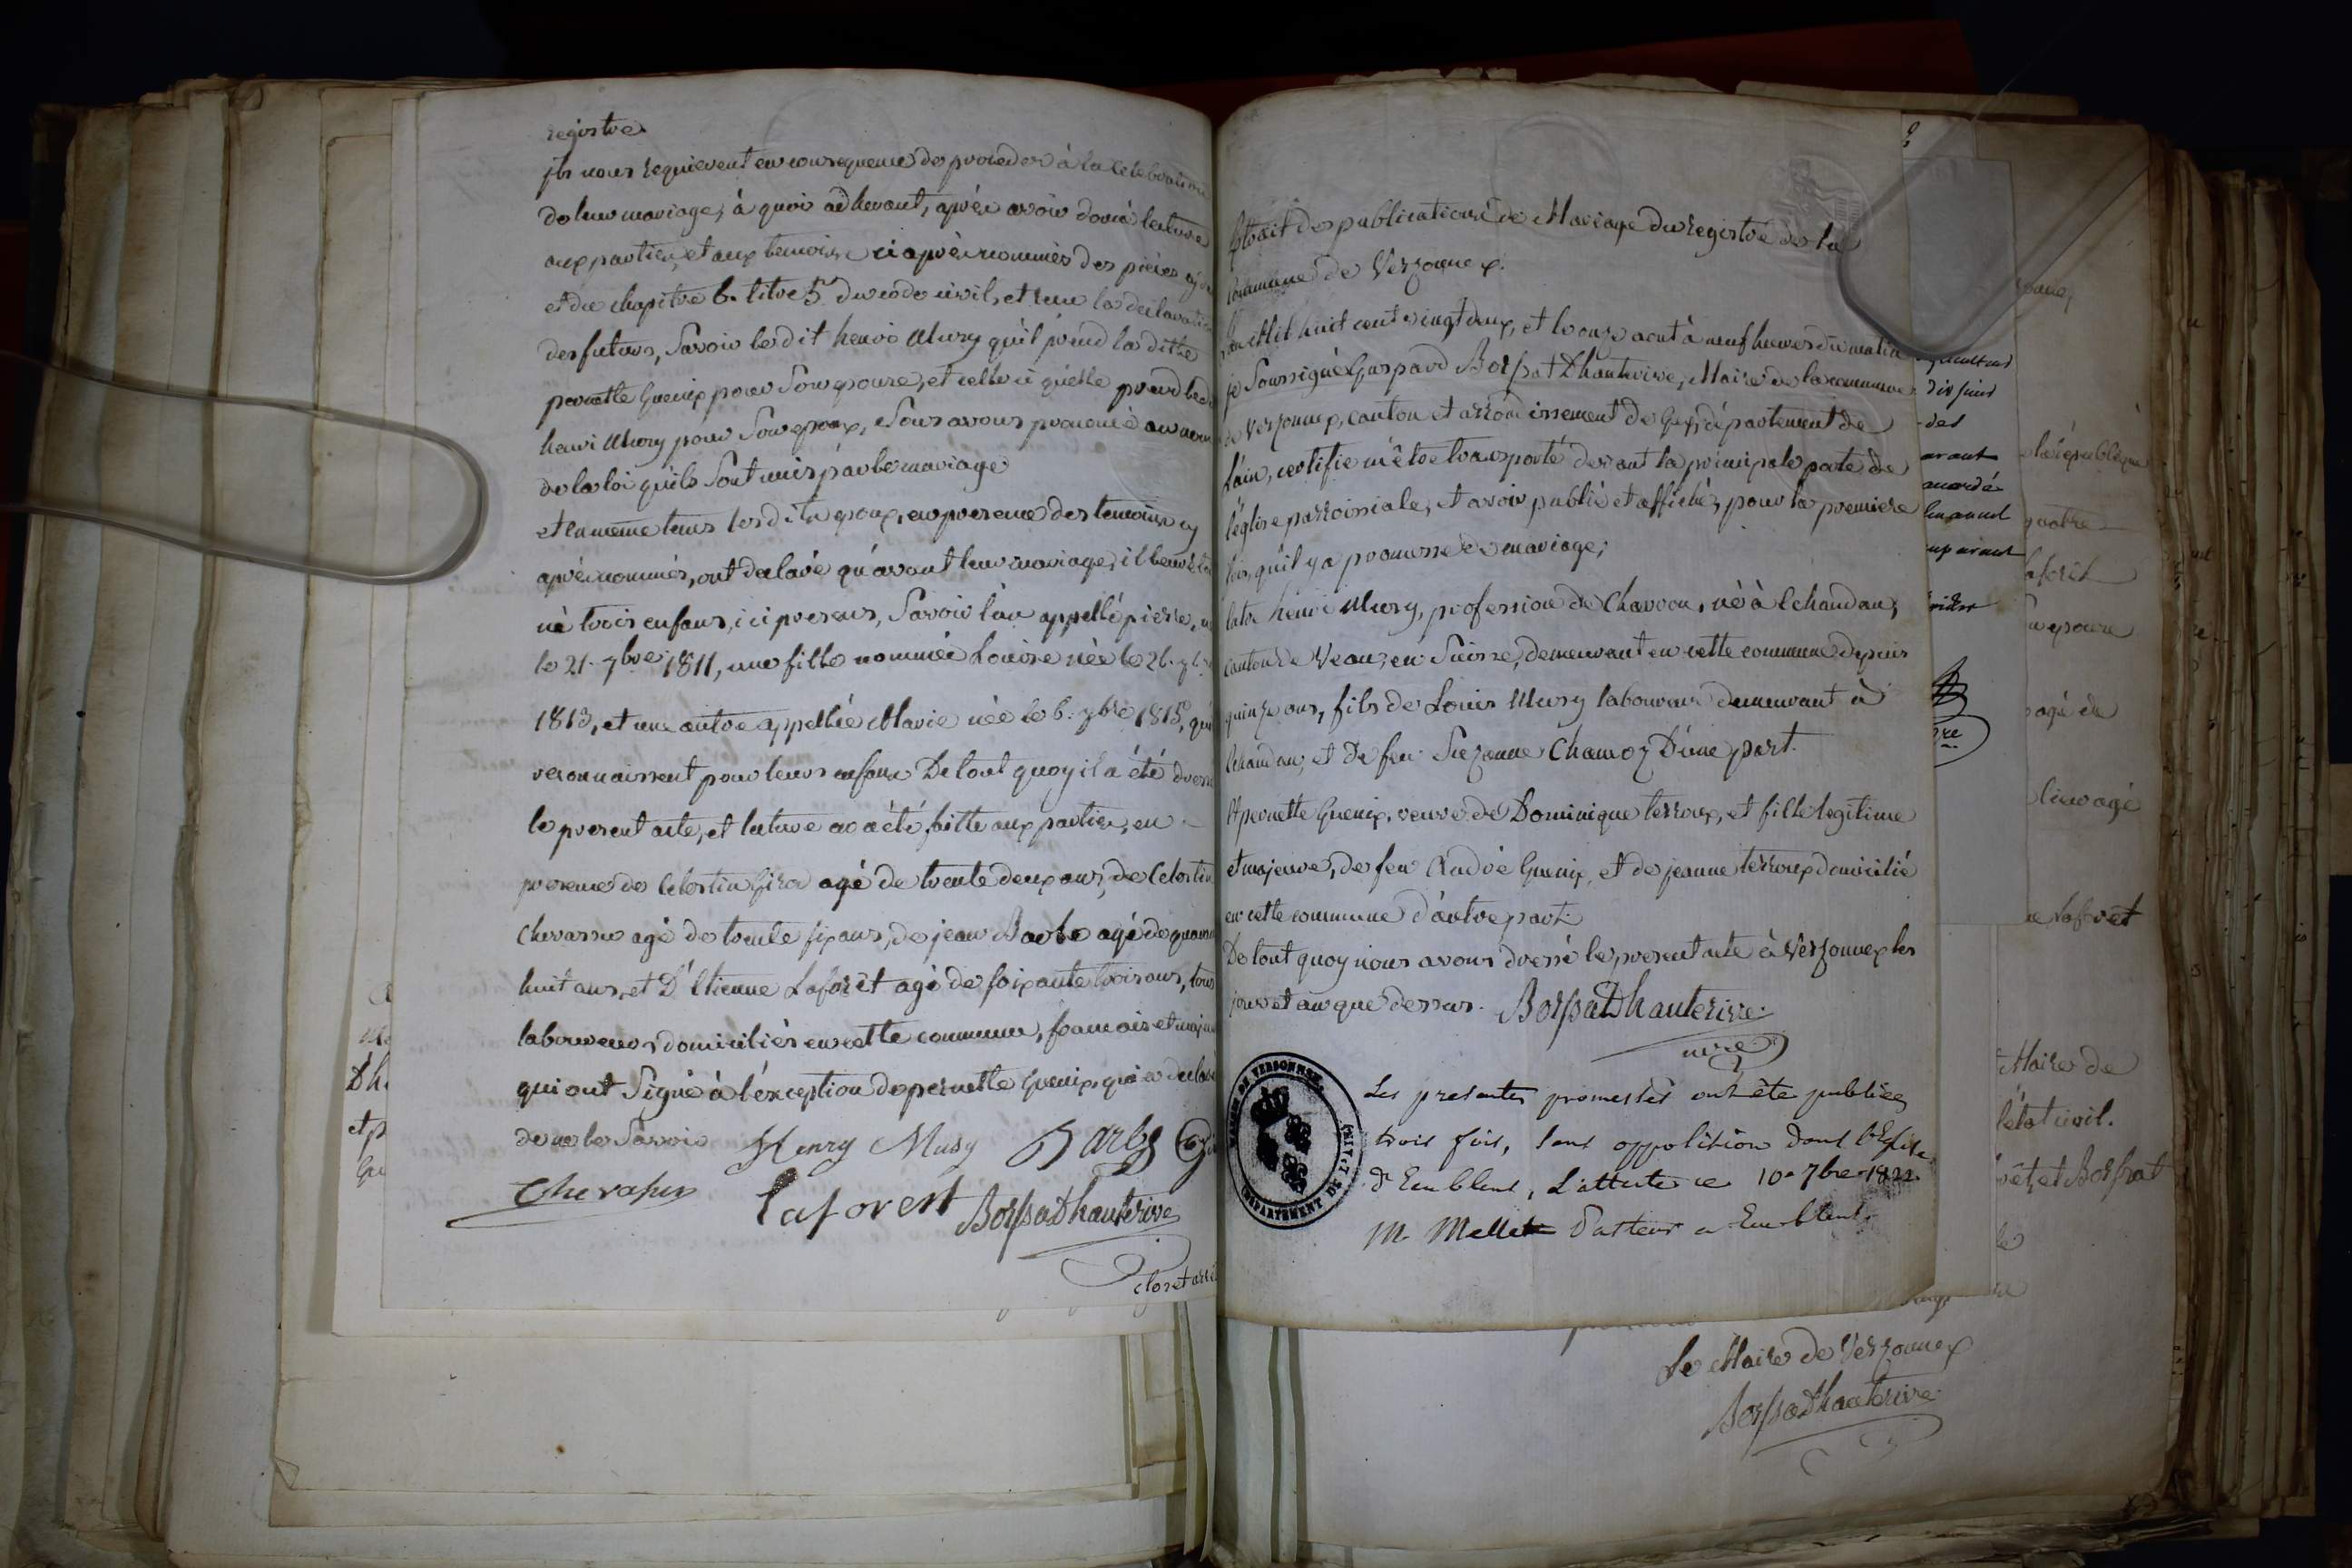 registre
ils nous requierent en consequence de proceder à la celebration
de leur mariage, à quoi adherant, après avoir doné lecture
aux parties, et aux temoins ci après nommés des pieces
et du chapitre 6. titre 5 du code civil, et reçu la declaration
des futurs, Savoir le dit henri Musy qu'il prend la ditte
pernette Guenix pour Son epouse, et celle ci qu'elle prend le dit
henri Musy pour Son epoux, Nous avons prononcé au nom
de la loi qu'ils Sont unis par le mariage
et en même tems les dits epoux, en presence des temoins cy
après nommés, ont declaré qu'avant leur mariage, il leur
né trois enfans, ici presens, Savoir l'un appellé pierre,
le 21. 7bre 1811, une fille nommée Louise née le 26.
1813, et une autre appellée Marie née le 6. 7bre 1815, qu'
reconnaissent pour leurs enfans De tout quoy il a été dressé
le present acte, et lecture a été faitte aux parties, en
presence de Celestin Girod agé de trente deux ans, de Celestin
Chevassu agé de trente six ans, de jean Barbe agé de quarante
huit ans, et D'Etienne Laforêt agé de soixante trois ans, tous
laboureurs domiciliés en cette commune, francais et majeurs
qui ont Signé à l'exception de pernette Guenix qui a declaré
de ne le Savoir Henry Musy Barbe
Chevassu laforest BorssatDhauterive
clos et arrêté
Extrait des publications de Mariage du registre de la
Commune de Versonnex.
L'an Mil huit cent vingt deux, et le onze aout à neuf heures du matin
je Soussigné Gaspard Borssat Dhauterive, Maire de la commune
de Versonnex, canton et arrondissement de Gex, département de
L'ain, certifie m'être transporté devant la principale porte de
l'église parroissiale, et avoir publié et affiché, pour la premiere
fois, qu'il y a promesse de mariage;
Entre henri Musy, profession de Charron, né à Echandan,
canton de Veau, en Suisse, demeurant en cette commune depuis
quinze ans, fils de Louis Musy laboureur demeurant à
Echandan, et De feu Suzanne Chamoz D'une part.
Et pernette Guenix, veuve de Dominique terroux, et fille legitime
et majeure, de feu André Guenix, et de jeanne terroux domicilié
en cette commune d'autre part.
De tout quoy nous avons dressé le present acte à Versonnex les
jour et an que dessus. BorssatDhauterive
mre
MAIRIE DE VERSONNEX
DÉPARTEMENT DE L'AIN
Les presentes promesses ont été publiées
trois fois, sans opposition dans l'Eglise
d'Ecublens, L'atteste ce 10e 7bre 1822.
M. Mellet Pasteur a Ecublens.
Le Maire de Versonnex
BorssatDhauterive
avant
Laforêt
epouse
agé de
Maire de
l'état civil.
et Borssat